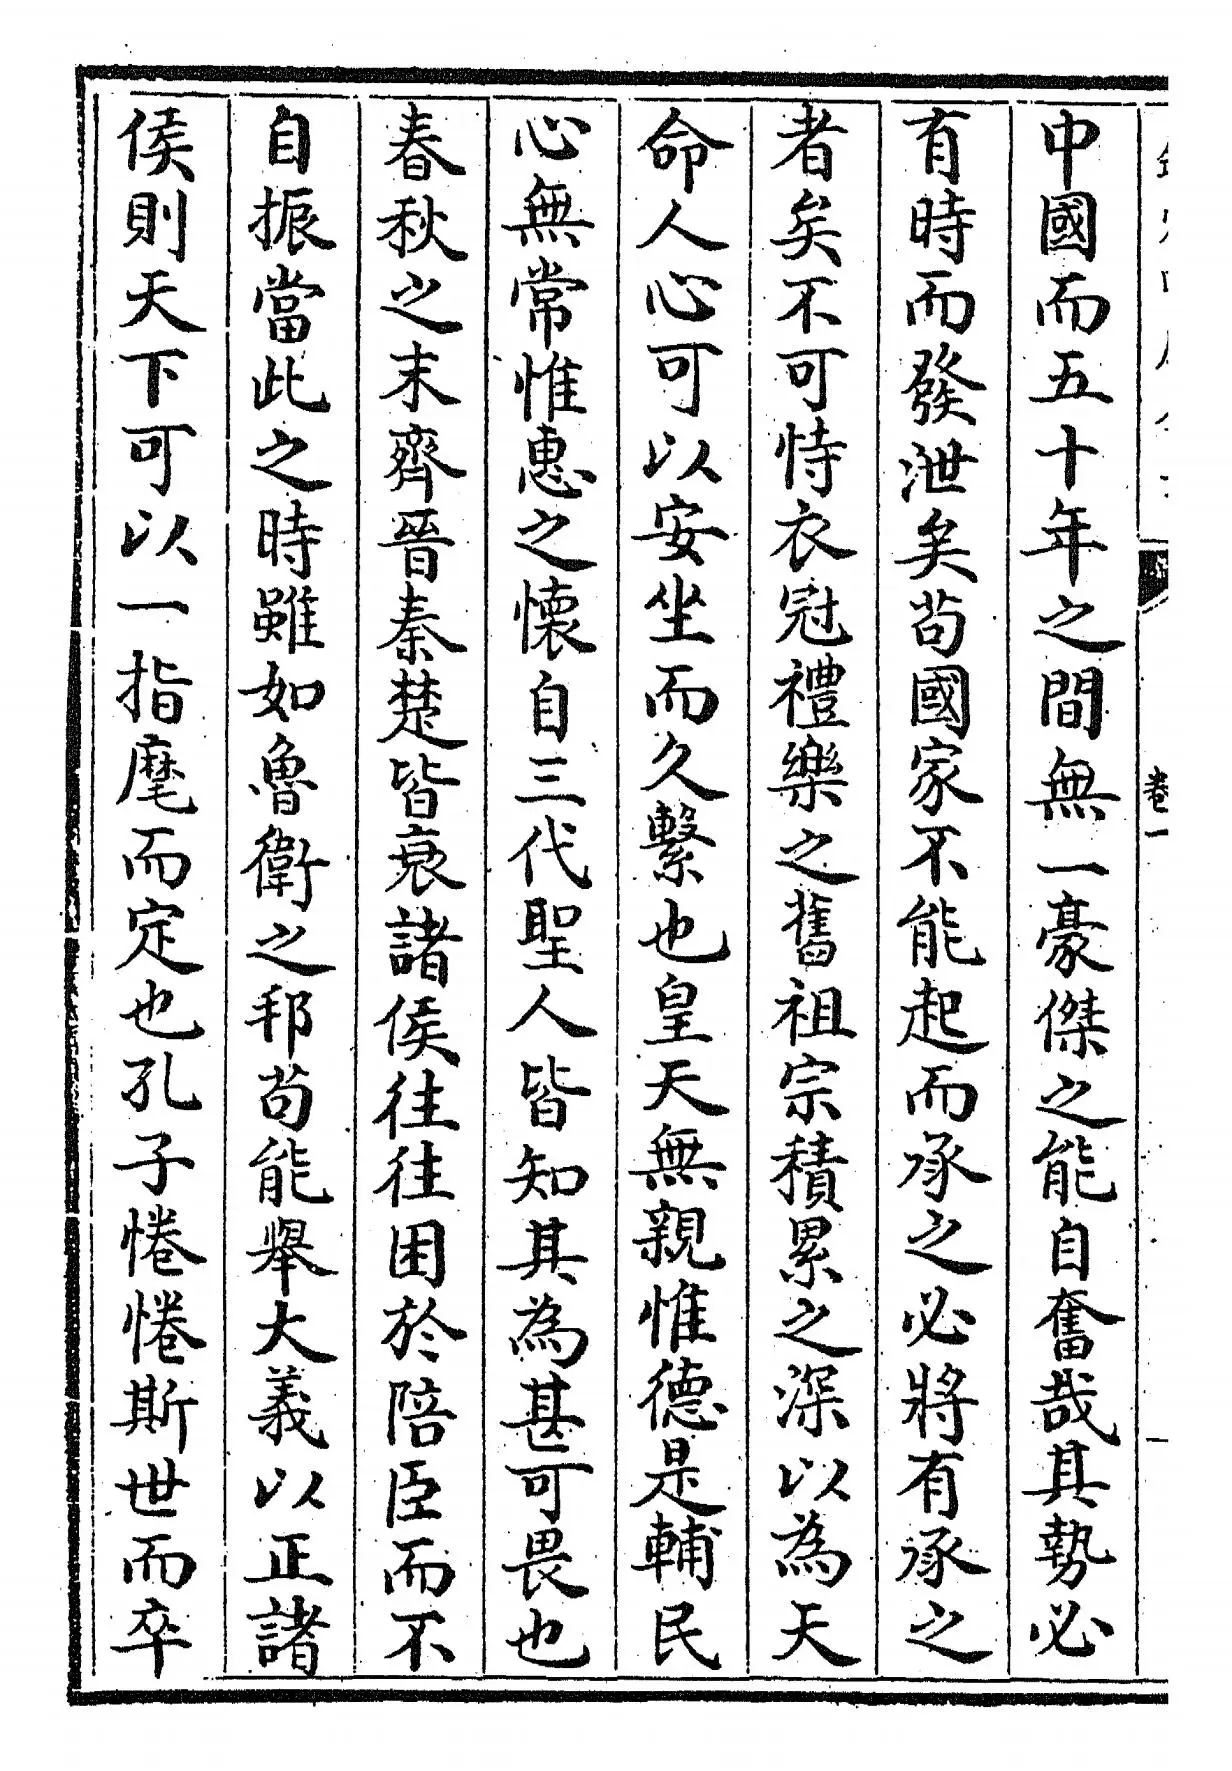 卷一
一
中國而五十年之間無一豪傑之能自奮哉其勢必
有時而發泄矣苟國家不能起而承之必將有承之
者矣不可恃衣冠禮樂之舊祖宗積累之深以為天
命人心可以安坐而久繫也皇天無親惟德是輔民
心無常惟惠之懷自三代聖人皆知其為甚可畏也
春秋之末齊晉秦楚皆衰諸侯往往困於陪臣而不
自振當此之時雖如魯衛之邦苟能舉大義以正諸
侯則天下可以一指麾而定也孔子惓惓斯世而卒